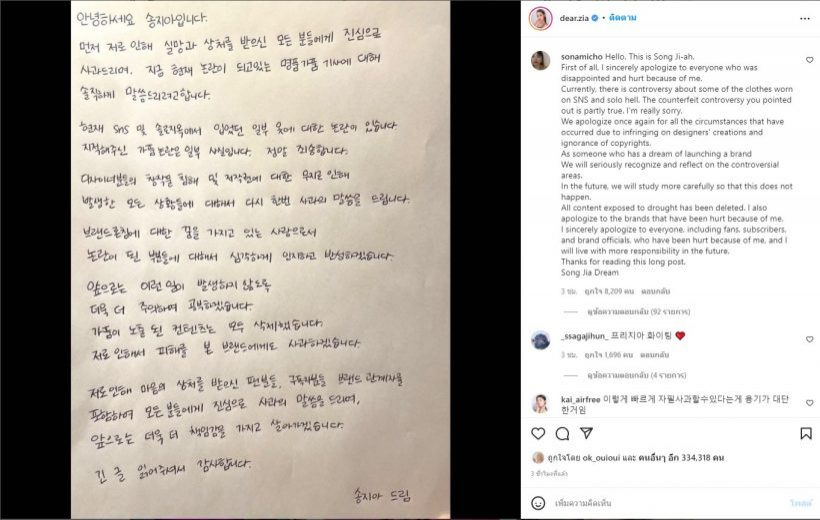 안녕하세요 송지아입니다.
먼저 저로 인해 실망과 상처를 받으신 모든 분들에게 진심으로
사과드리며, 지금 현재 논란이 되고있는 명품가품 기사에 대해
솔직하게 말씀드리려고합니다.
현재 SNS 및 솔로지옥에서 입었던 일부 옷에 대한 논란이 있습니다
지적해주신 가품논란은 일부 사실입니다. 정말 죄송합니다.
디자이너분들의 창작물 침해 및 저작권에 대한 무지로 인해
발생한 모든 상황들에 대해서 다시 한번 사과의 말씀을 드립니다.
브랜드론칭에 대한 꿈을 가지고 있는 사람으로서
논란이 된 부분들에 대해서 심각하게 인지하고 반성하겠습니다.
앞으로는 이런 일이 발생하지 않도록
더욱 더 주의하며 공부하겠습니다.
가품이 노출 된 컨텐츠는 모두 삭제했습니다.
저로 인해서 피해를 본 브랜드에게도 사과하겠습니다.
저로인해 마음의 상처를 받으신 팬분들, 구독자분들 브랜드 관계자를
포함하여 모든분들에게 진심으로 사과의 말씀을 드리며,
앞으로는 더욱 더 책임감을 가지고 살아가겠습니다.
긴 글 읽어주셔서 감사합니다.
송지아 드림
dear.zia • ติดตาม
sonamicho Hello. This is Song Ji-ah.
First of all, I sincerely apologize to everyone who was
disappointed and hurt because of me.
Currently, there is controversy about some of the clothes worn
on SNS and solo hell. The counterfeit controversy you pointed
out is partly true. I'm really sorry.
We apologize once again for all the circumstances that have
occurred due to infringing on designers' creations and
ignorance of copyrights.
As someone who has a dream of launching a brand
We will seriously recognize and reflect on the controversial
areas.
In the future, we will study more carefully so that this does not
happen.
All content exposed to drought has been deleted. I also
apologize to the brands that have been hurt because of me.
I sincerely apologize to everyone, including fans, subscribers,
and brand officials, who have been hurt because of me, and I
will live with more responsibility in the future.
Thanks for reading this long post.
Song Jia Dream
3 ชม. ถูกใจ 8,209 คน ตอบกลับ
ดูข้อความตอบกลับ (92 รายการ)
_ssagajihun_ 프리지아 화이팅 ❤️
3 ชม. ถูกใจ 1,696 คน ตอบกลับ
ดูข้อความตอบกลับ (4 รายการ)
kai_airfree 이렇게 빠르게 자필사과할수있다는게 용기가 대단
한거임
ถูกใจโดย ok_ouioui และ คนอื่นๆ อีก 334,318 คน
3 ชั่วโมงที่แล้ว
เพิ่มความคิดเห็น...
โพสต์